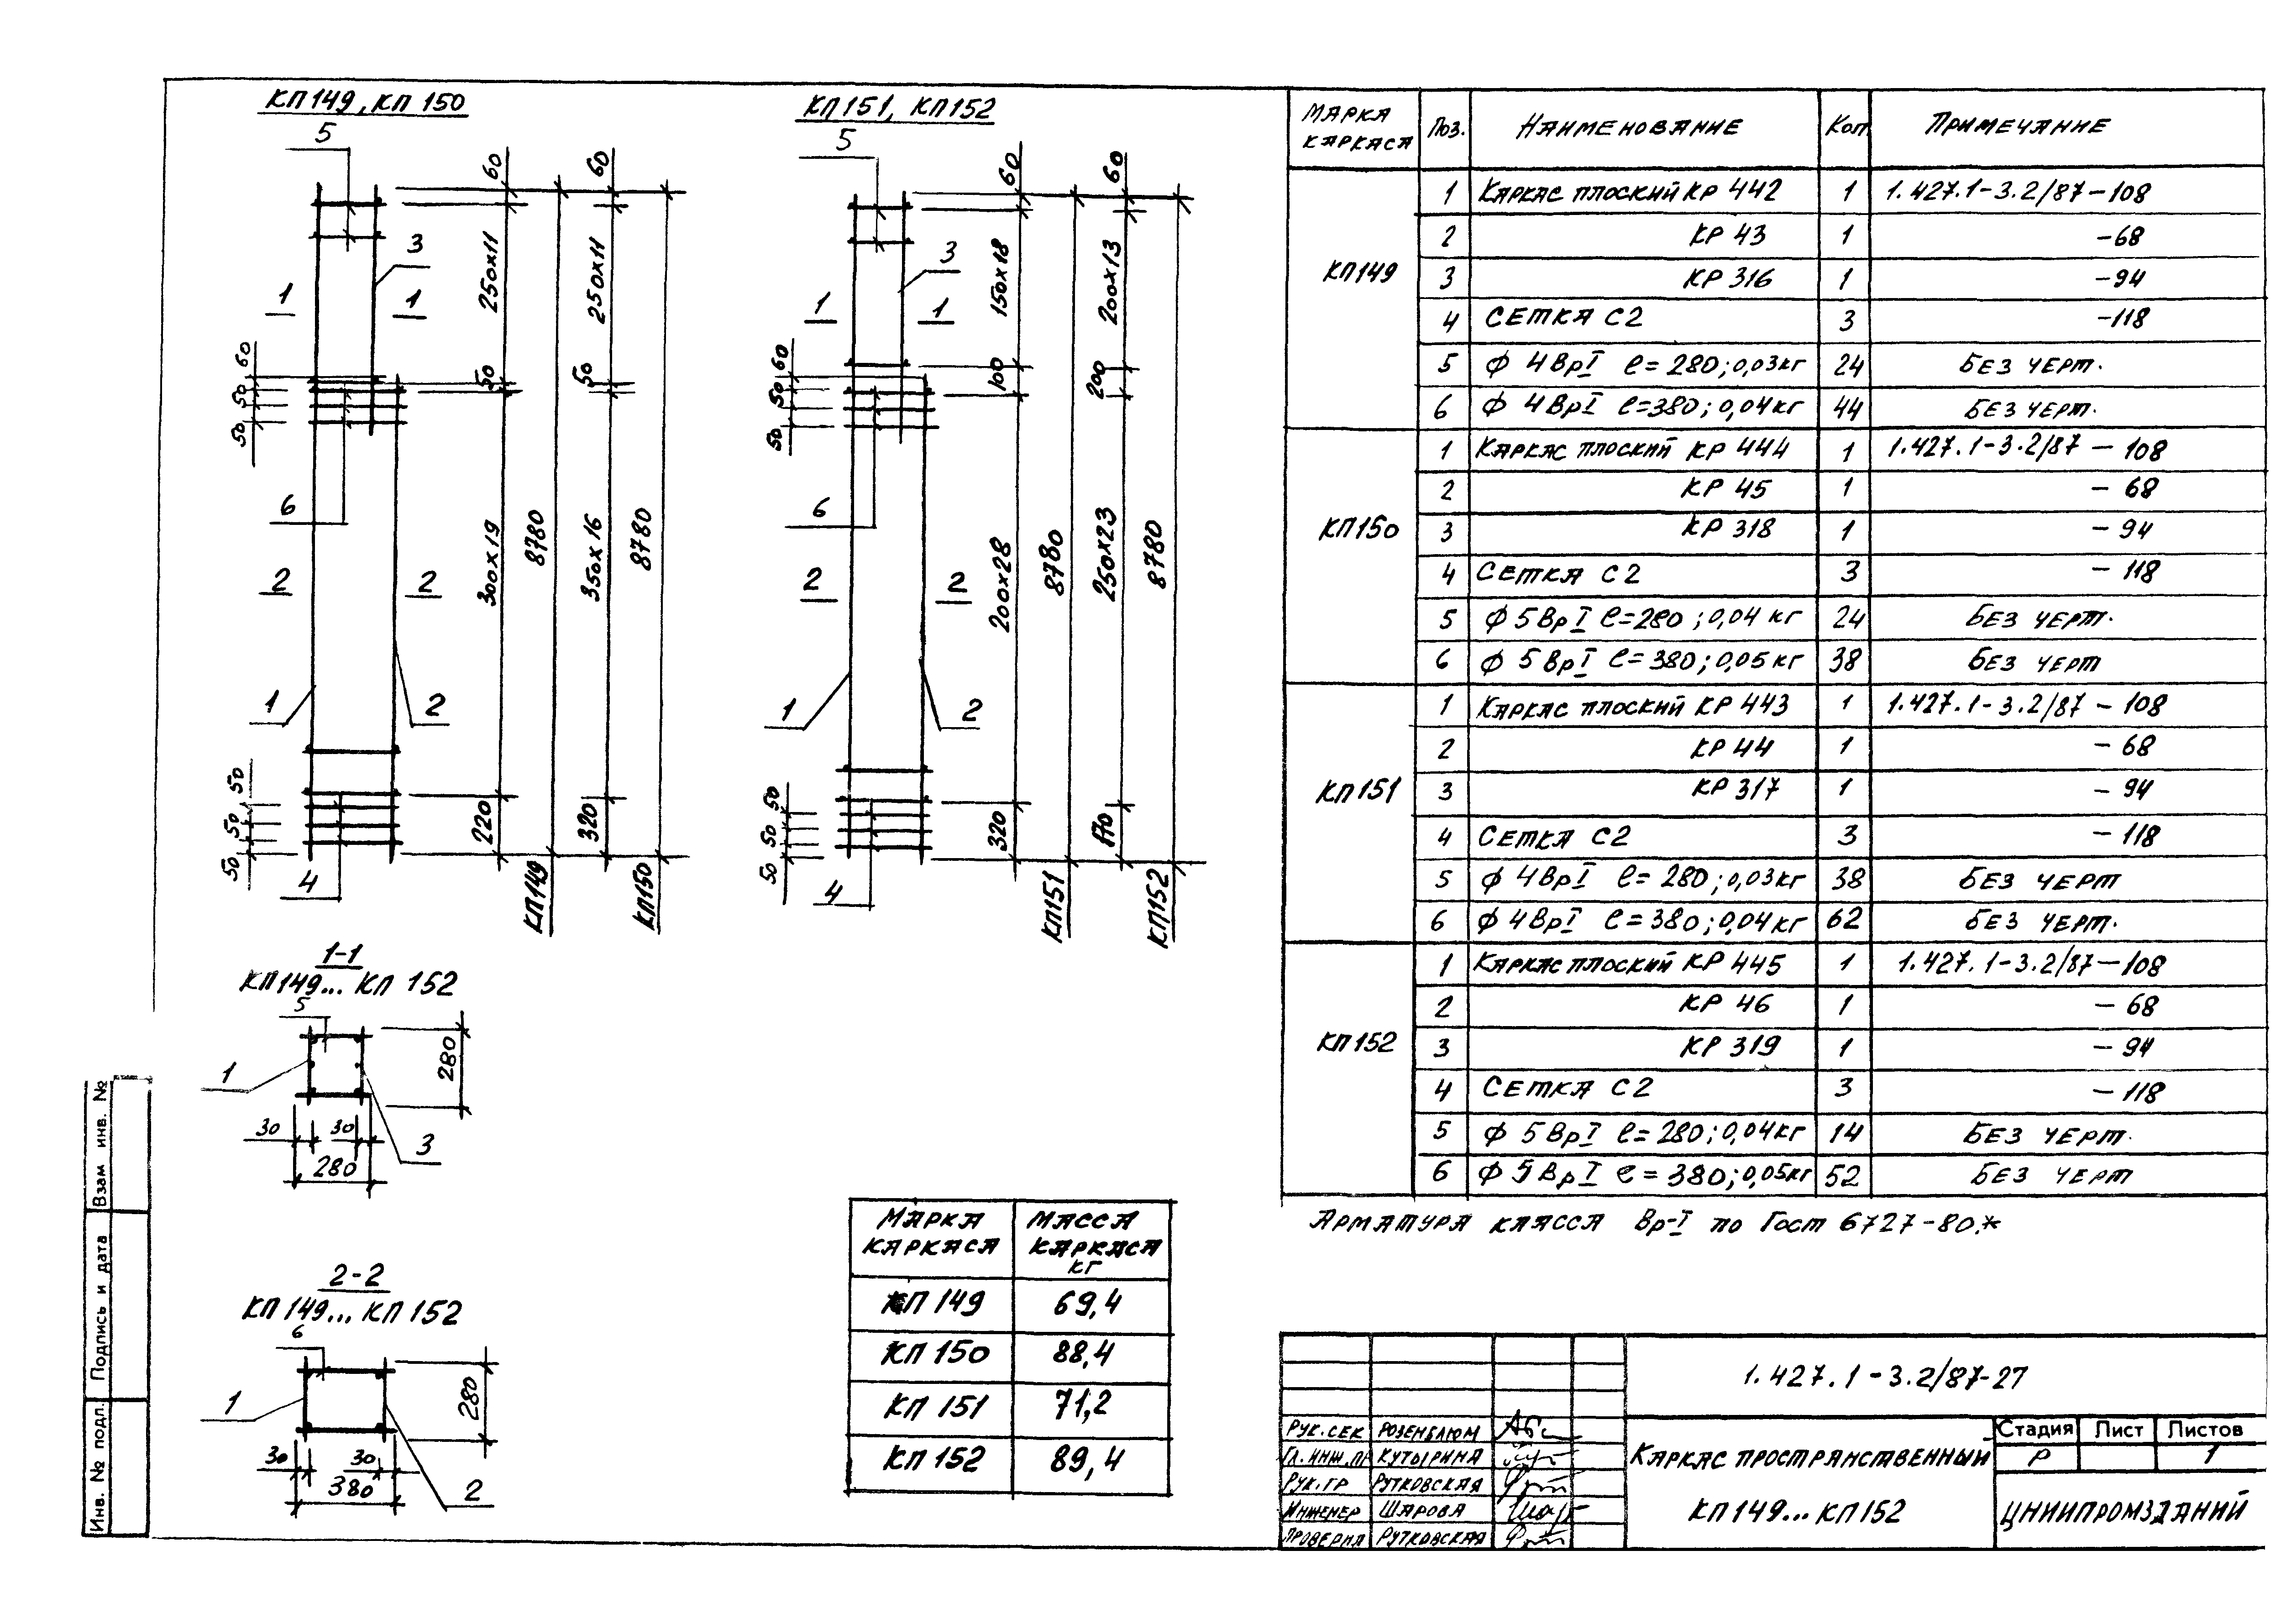 КП149, КП 150
5
3
1
1
6
2
2
1
2
4
60
50
50
50
50
50
60
250х11
50
300х19
220
8780
КП149
60
250х11
50
350х16
320
8780
КП150
КП151, КП152
5
3
1
1
6
2
2
1
2
4
60
50
50
50
50
50
60
150х18
100
200х28
320
8780
КП151
60
200х13
200
250х23
170
8780
КП152
1-1
КП149... КП 152
5
1
3
280
30
30
280
2-2
КП 149... КП 152
6
1
2
280
30
30
380
Марка каркаса
Масса каркаса кг
КП 149 69,4
КП 150 88,4
КП 151 71,2
КП 152 89,4
Марка каркаса Поз. Наименование Кол. Примечание
КП149
1 Каркас плоский КР 442 1 1.427.1-3.2/87-108
2 КР 43 1 -68
3 КР 316 1 -94
4 Сетка С2 3 -118
5 ф 4ВрI ℓ=280; 0,03кг 24 Без черт.
6 ф 4ВрI ℓ=380; 0,04кг 44 Без черт.
КП150
1 Каркас плоский КР 444 1 1.427.1-3.2/87 - 108
2 КР 45 1 - 68
3 КР 318 1 - 94
4 Сетка С2 3 - 118
5 ф 5ВрI ℓ=280; 0,04 кг 24 Без черт.
6 ф 5ВрI ℓ=380; 0,05кг 38 Без черт
КП151
1 Каркас плоский КР 443 1 1.427.1-3.2/87 - 108
2 КР 44 1 - 68
3 КР 317 1 - 94
4 Сетка С2 3 - 118
5 ф 4ВрI ℓ=280; 0,03кг 38 Без черт
6 ф 4ВрI ℓ=380; 0,04кг 62 Без черт.
КП152
1 Каркас плоский КР 445 1 1.427.1-3.2/87-108
2 КР 46 1 - 68
3 КР 319 1 - 94
4 Сетка С2 3 - 118
5 ф 5ВрI ℓ=280; 0,04кг 14 Без черт.
6 ф 5ВрI ℓ=380; 0,05кг 52 Без черт
Арматура класса Вр-I по Гост 6727-80.*
1.427.1-3.2/87-27
Рук.сек Розенблюм
Гл.инж.пр Кутырина
Рук.гр Рутковская
Инженер Шарова
Проверил Рутковская
Каркас пространственный
КП149... КП152
Стадия Лист Листов
Р 1
ЦНИИПРОМЗДАНИЙ
Взам инв. №
Подпись и дата
Инв. № подл.